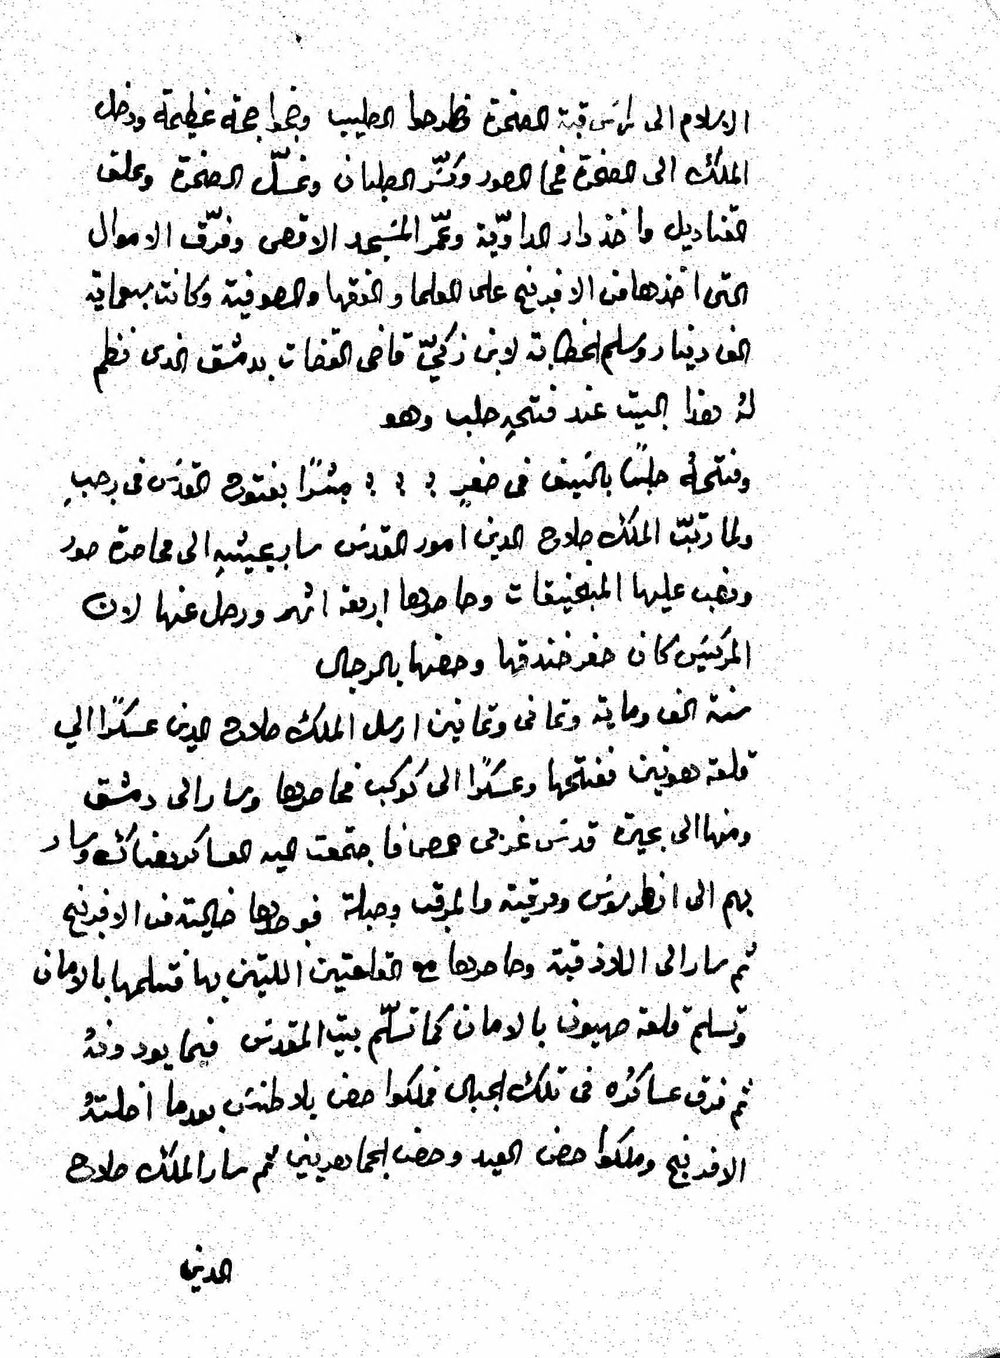 الاسلام الى راس قبة الصخرة فطرحوا الصليب وضجوا ضجة عظيمة ودخل
الملك الى الصخرة فمحا الصور وكسّر الصلبان وغسّل الصخرة وعلق
القناديل واخذ دار الداويّة وعمّر المسجد الاقصى وفرّق الاموال
التى اخذها من الافرنج على العلما والفقها والصوفية وكانت سبعماية
الف دينار وسلم الخطابة لابن زكيّ قاضى القضات بدمشق الذى نظم
لهُ هذا البيت عند فتحهِ حلب وهو
وفتحهُ حلبًا بالسيف فى صفرٍ ؛ ؛ ؛ مبشرًا بفتوح القدس فى رجبِ
ولما رتبّ الملك صلاح الدين امور القدس سار بجيشهِ الى محاصرة صور
ونصب عليها المنجنيقات وحاصرها اربعة اشهر ورحل عنها لان
المركيس كان حفر خندقها وحصنها بالرجال
سنة الف وماية وثمانى وثمانين ارسل الملك صلاح الدين عسكرًا الي
قلعة هونين ففتحها وعسكرًا الى كوكب فحاصرها وسار الى دمشق
ومنها الى بحيرة قدس غربى حمص فاجتمعت اليه العساكر هناك وسار
بهم الى انطرسوس ومرقية والمرقب وجبلة فوجدها خالية من الافرنج
ثم سار الى اللاذقية وحاصرها مع القلعتين اللتين بها فتسلمها بالامان
وتسلم قلعة صهيون بالامان كما تسلّم بيت المقدس فيما يودونهُ
ثم فرق عساكرُه فى تلك الجبال فملكوا حصن بلاطنس بعدما اخلتهُ
الافرنج وملكوا حصن العيد وحصن الجماهريين ثم سار الملك صلاح
الدين